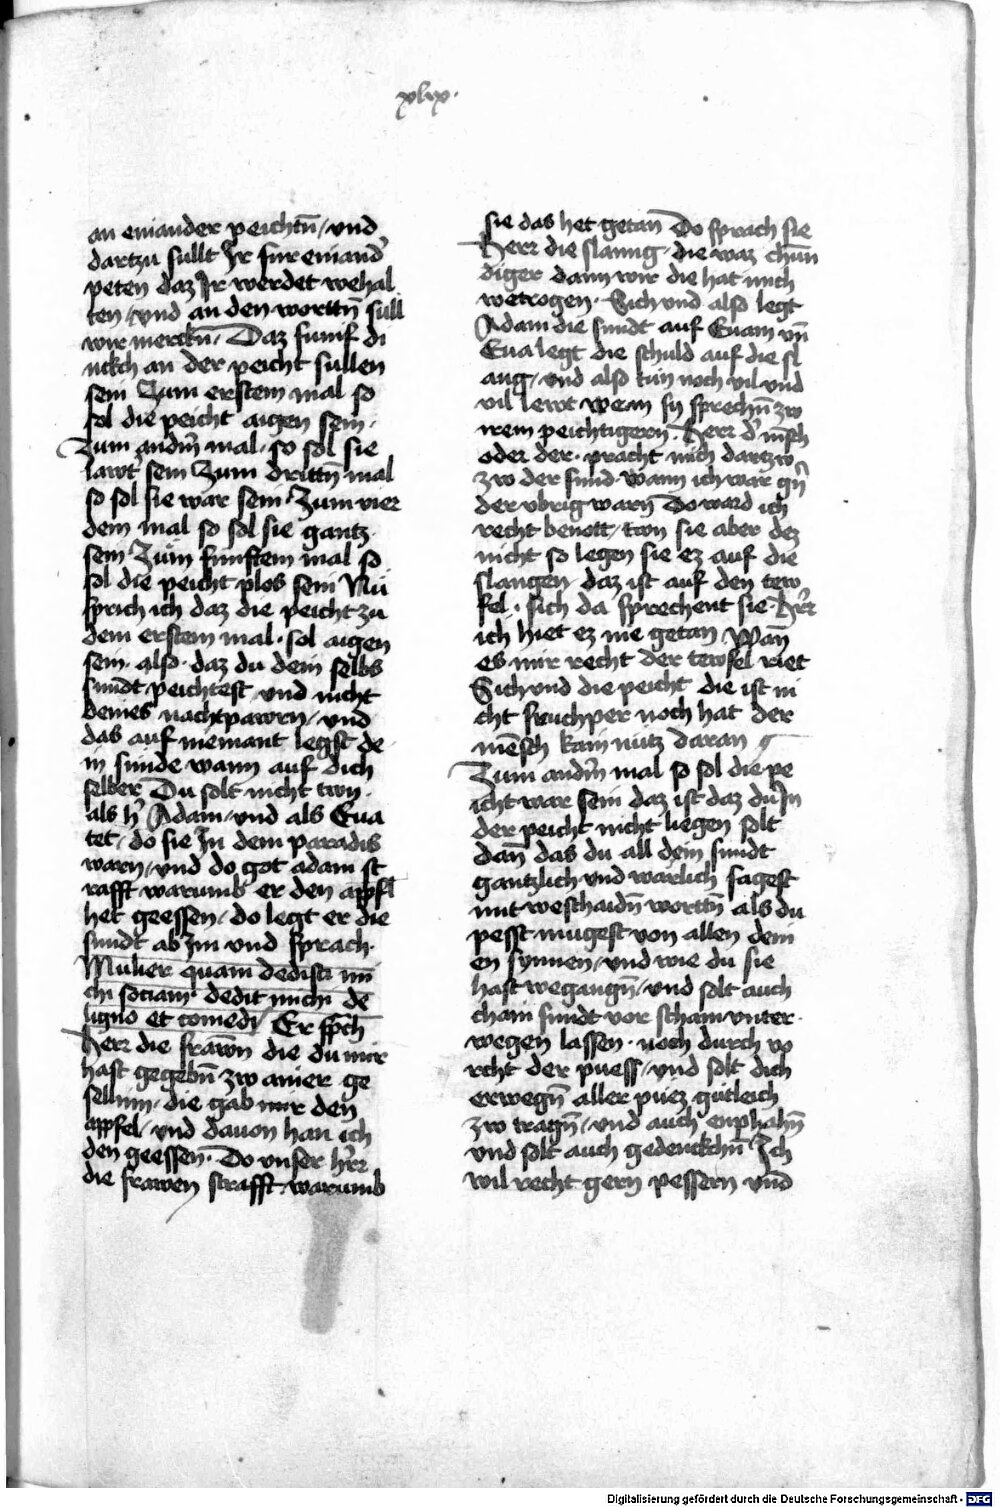 xlvx.
an einander peichtn̄ / vnd
dartzu sullt Ir fur einand'
peten daz Ir werdet wehal
ten / vnd an den worttn̄ sull
wir merckn̄ / Daz fumf di
nckch an der peicht sullen
sein Zum erstem mal so
sol die peicht aigen sein.
Zum andm̄ mal. so sol sie
lawt' sein Zum drittn̄ mal
so sol sie war sein. Zum vier
dem mal so sol sie gantz.
sein Zum funftem mal so
sol die peicht plos sein Nu
sprich ich daz die peicht zu
dem erstem mal. sol aigen
sein. also. daz du dein selbs
sundt peichtest vnd nicht
deines nachtpawrn / vnd
das auf niemant legst de
in sunde wann auf dich
selber Du solt nicht twn.
als h' Adam / vnd als Eua
tet / do sie In dem paradis
warn / vnd do got adam st
rafft warumb er den appfl
het geessen / do legt er die
sundt ab Im vnd sprach.
Mulier quam dedisti mi
chi sociam. dedit michi de
ligno et comedi / Er sp̄ch
herr die frawn̄ die du mir
hast gegebn̄ zw ainer ge
sellinn. die gab mir den
appfel / vnd dauon han ich
den geessen. Do vnser h'rr
die frawen strafft. warumb
sie das het getan̄ Do sprach sie
Herr die slanng. die waz chun
diger dann wir die hat mich
wetrogen. Sich vnd also legt
Adam die sundt auf Euam vn̄
Eua legt die schuld auf die sl
ang / vnd also tun noch vil vnd
vil lewt wenn sy sprechn̄ zw
irem peichtigern. Herr d' mēsch
oder der. pracht mich dartzw
zw der sund. Wann ich war gn̄
der vbrig warn̄ Do ward ich
recht benott / twn sie aber dez
nicht so legen sie ez auf die
slangen daz ist auf den tew
fel. sich da sprechent sie. H'rr
ich hiet ez nie getan wan̄
es mir recht der tewfel riet
Sich vnd die peicht die ist ni
cht fruchper noch hat der
mēsch kain nutz daran
Zum andm̄ mal so sol die pe
icht war sein daz ist daz du In
der peicht nicht liegen solt
dan̄ das du all dein sundt
gantzlich vnd warlich sagest
mit weschaidn̄ worttn̄ als du
pesst mugest von allen dein
en synnen / vnd wie du sie
hast wegangn̄ / vnd solt auch
chain sundt vor scham vnter.
wegen lassen. noch durch vo
rcht der puess / vnd solt dich
erwegn̄ aller puez gutleich
zw tragn̄ / vnd auch enphahn̄
vnd solt auch gedenckchn̄ Ich
wil recht gern pessern vnd
Digitalisierung gefördert durch die Deutsche Forschungsgemeinschaft - DFG